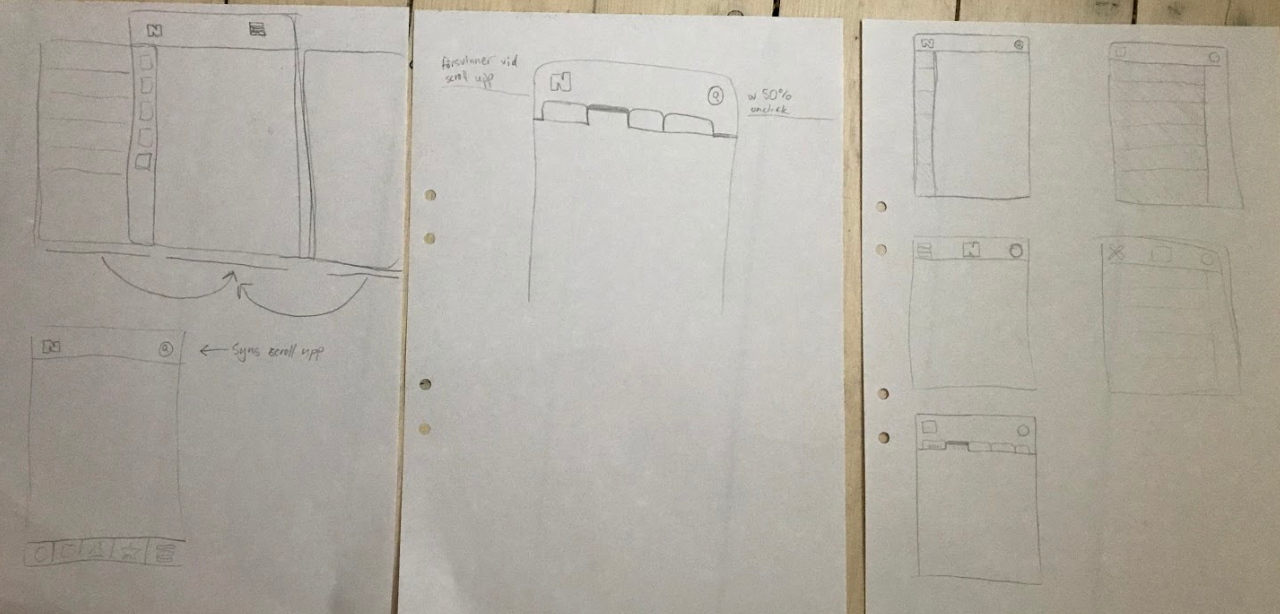 N
N
← Syns scroll upp
försvinner vid
scroll upp
N
Q
w 50%
onclick
N
N